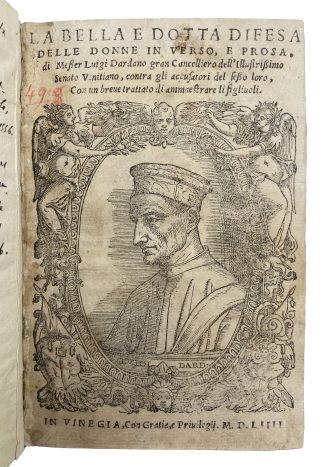 LA BELLA E DOTTA DIFESA
DELLE DONNE IN VERSO, E PROSA,
di Messer Luigi Dardano gran Cancelliero dell'Illustrissimo
Senato Vinitiano, contra gli accusatori del sesso loro,
Con un breve trattato di ammaestrare li figliuoli.
49:8
DARD.
IN VINEGIA, Con Gratia, e Privilegij. M. D. LIIII